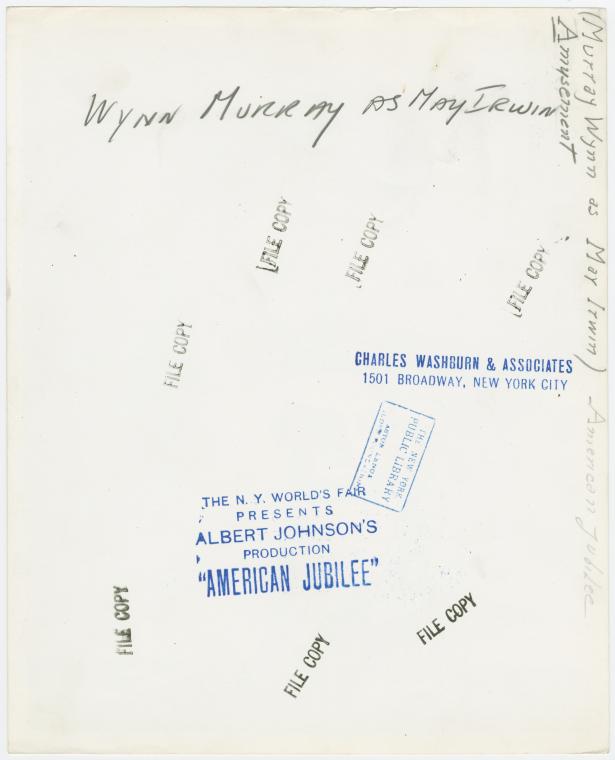 WYNN MURRAY AS MAY IRWIN
(Murray Wynn as May Irwin) - American Jubilee
Amusement
FILE COPY
FILE COPY
FILE COPY
FILE COPY
CHARLES WASHBURN & ASSOCIATES
1501 BROADWAY, NEW YORK CITY
THE NEW YORK
PUBLIC LIBRARY
ASTOR LENOX
THE N. Y. WORLD'S FAIR
PRESENTS
ALBERT JOHNSON'S
PRODUCTION
"AMERICAN JUBILEE"
FILE COPY
FILE COPY
FILE COPY